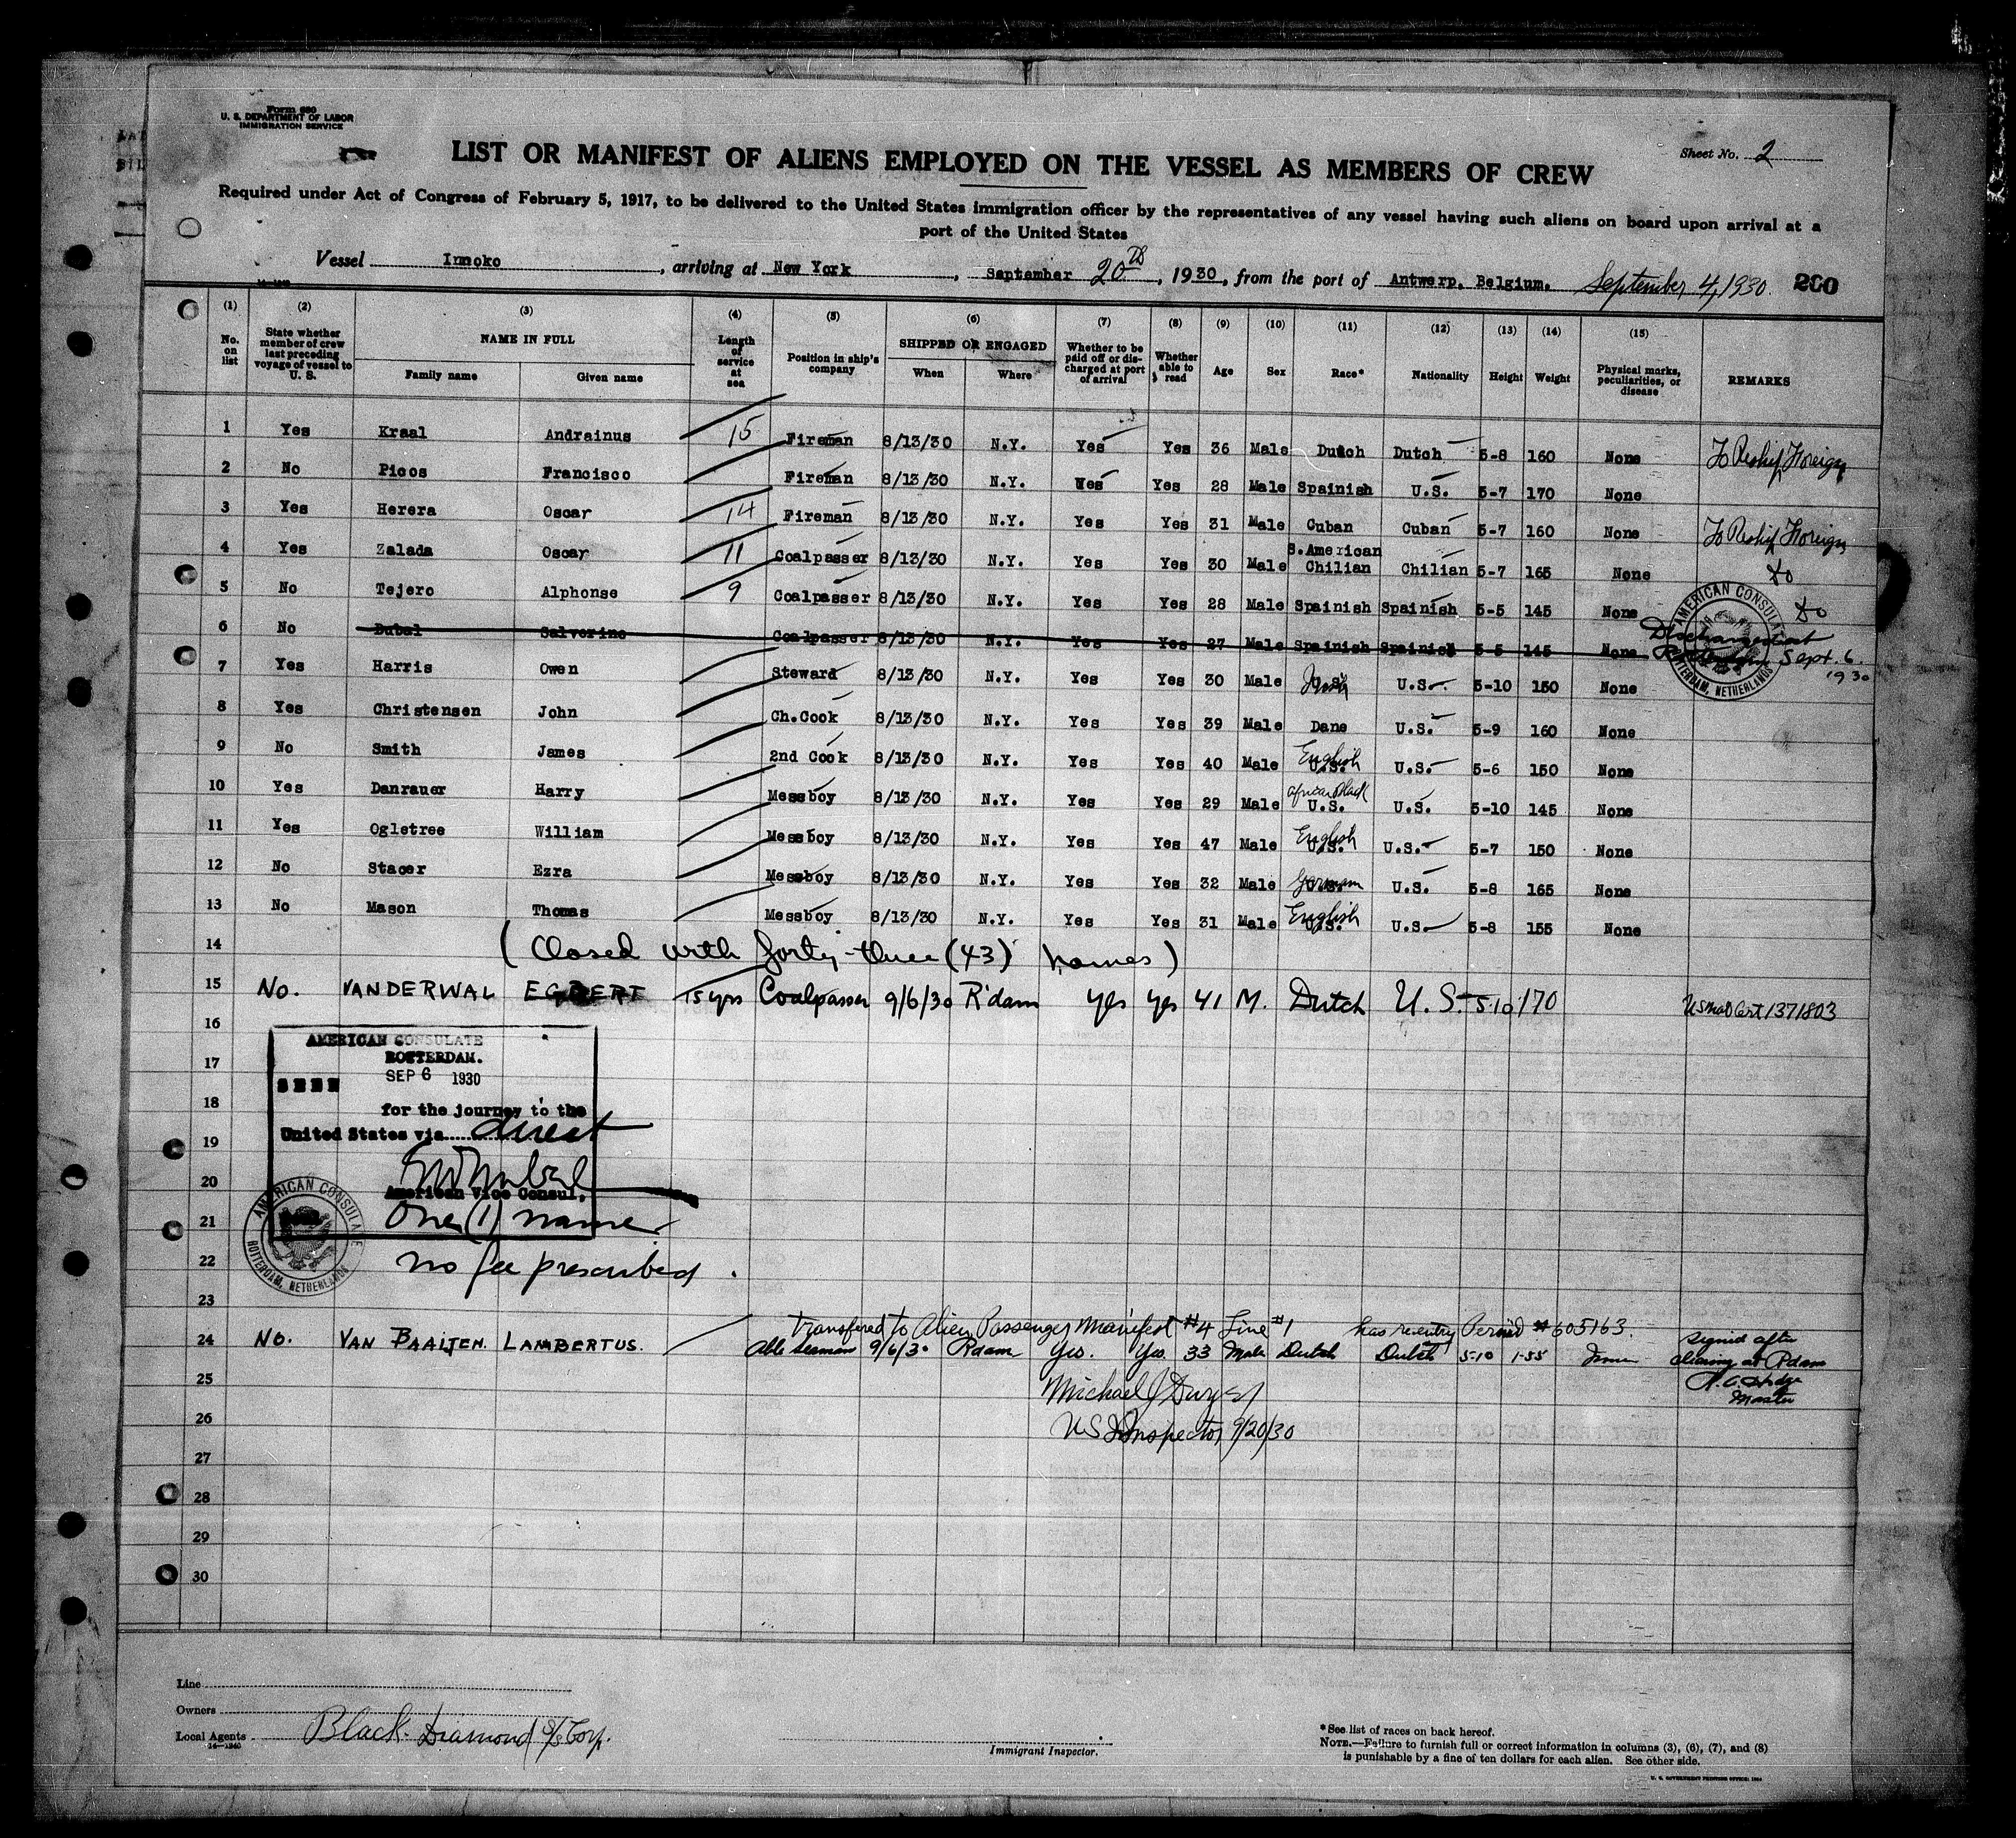 Form 680
U. S. DEPARTMENT OF LABOR
IMMIGRATION SERVICE
Sheet No. 2
LIST OR MANIFEST OF ALIENS EMPLOYED ON THE VESSEL AS MEMBERS OF CREW
Required under Act of Congress of February 5, 1917, to be delivered to the United States immigration officer by the representatives of any vessel having such aliens on board upon arrival at a
port of the United States
Vessel Innoko, arriving at New York, September 20th, 1930, from the port of Antwerp, Belgium. September 4, 1930. 260
(1) No. on list
(2) State whether member of crew last preceding voyage of vessel to U. S.
(3) NAME IN FULL Family name Given name
(4) Length of service at sea
(5) Position in ship's company
(6) SHIPPED OR ENGAGED When Where
(7) Whether to be paid off or discharged at port of arrival
(8) Whether able to read
(9) Age
(10) Sex
(11) Race*
(12) Nationality
(13) Height
(14) Weight
(15) Physical marks, peculiarities, or disease
REMARKS
1 Yes Kraal Andrainus 15 Fireman 8/13/30 N.Y. Yes Yes 36 Male Dutch Dutch 5-8 160 None To Reship Foreign
2 No Picos Francisco Fireman 8/13/30 N.Y. Yes Yes 28 Male Spainish U.S. 5-7 170 None
3 Yes Herera Oscar 14 Fireman 8/13/30 N.Y. Yes Yes 31 Male Cuban Cuban 5-7 160 None To Reship Foreign
4 Yes Zalada Oscar 11 Coalpasser 8/13/30 N.Y. Yes Yes 30 Male S.American Chilian Chilian 5-7 165 None do
5 No Tejero Alphonse 9 Coalpasser 8/13/30 N.Y. Yes Yes 28 Male Spainish Spainish 5-5 145 None do
6 No Dubal Salverino Coalpasser 8/13/30 N.Y. Yes Yes 27 Male Spainish Spainish 5-5 145 None Discharged at Rotterdam Sept. 6. 1930
AMERICAN CONSULATE ROTTERDAM, NETHERLANDS
7 Yes Harris Owen Steward 8/13/30 N.Y. Yes Yes 30 Male U.S. U.S. 5-10 150 None
8 Yes Christensen John Ch.Cook 8/13/30 N.Y. Yes Yes 39 Male Dane U.S. 5-9 160 None
9 No Smith James 2nd Cook 8/13/30 N.Y. Yes Yes 40 Male English U.S. U.S. 5-6 150 None
10 Yes Danrauer Harry Messboy 8/13/30 N.Y. Yes Yes 29 Male African Black U.S. U.S. 5-10 145 None
11 Yes Ogletree William Messboy 8/13/30 N.Y. Yes Yes 47 Male English U.S. U.S. 5-7 150 None
12 No Stacer Ezra Messboy 8/13/30 N.Y. Yes Yes 32 Male German U.S. U.S. 5-8 165 None
13 No Mason Thomas Messboy 8/13/30 N.Y. Yes Yes 31 Male English U.S. U.S. 5-8 155 None
14 (Closed with forty-three (43) names)
15 No. VANDERWAL EGBERT 15 yrs Coalpasser 9/6/30 R'dam yes yes 41 M. Dutch U.S. 5-10 170 US Nat Cert 1371803
16
AMERICAN CONSULATE
ROTTERDAM.
17
SEP 6 1930
SEEN
18
for the journey to the
19
United States via direct
20
American Vice Consul,
21
One (1) name
AMERICAN CONSULATE ROTTERDAM, NETHERLANDS
22
no fee prescribed.
23
transfered to Alien Passenger Manifest #4 Line #1 has reentry Permit # 605163.
24 No. VAN BAAIJEN. LAMBERTUS. Able seaman 9/6/30 Rdam Yes. Yes 33 Male Dutch Dutch 5-10 1-55 signed after clearing at Rdam
Master
25
Michael J Dwyer
26
US Inspector 9/20/30
27
28
29
30
Line
Owners
Local Agents Black Diamond S/S Corp.
14-1240
Immigrant Inspector.
*See list of races on back hereof.
NOTE.—Failure to furnish full or correct information in columns (3), (6), (7), and (8)
is punishable by a fine of ten dollars for each alien. See other side.
U. S. GOVERNMENT PRINTING OFFICE